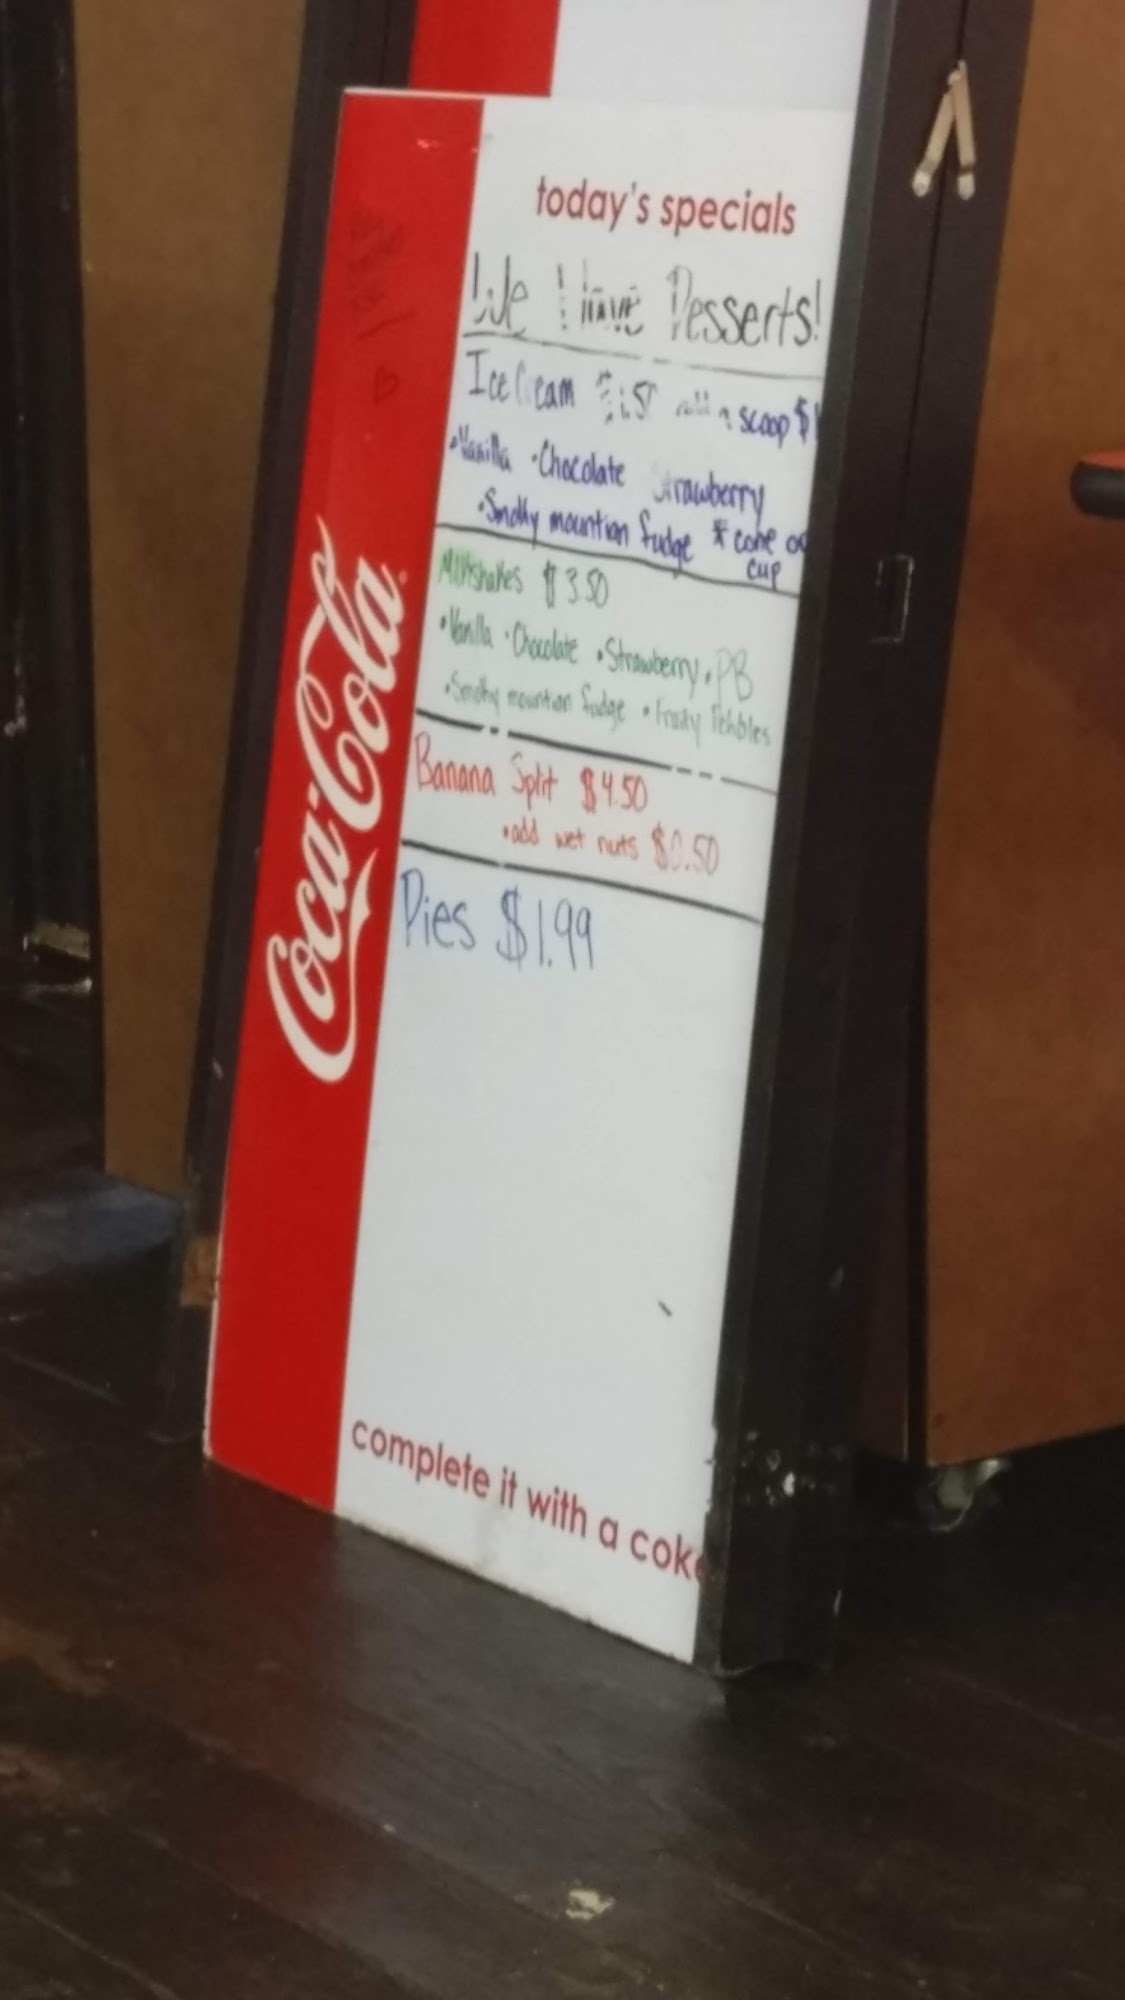 today's specials
We Have Desserts!
Ice Cream add a scoop $1
•Vanilla •Chocolate Strawberry
•Smoky mountian fudge * cone or
cup
Milkshakes $3.50
•Vanilla •Chocolate •Strawberry •PB
•Smoky mountian fudge •Fruity Pebbles
Banana Split $4.50
•add wet nuts $0.50
Pies $1.99
Coca-Cola
complete it with a coke